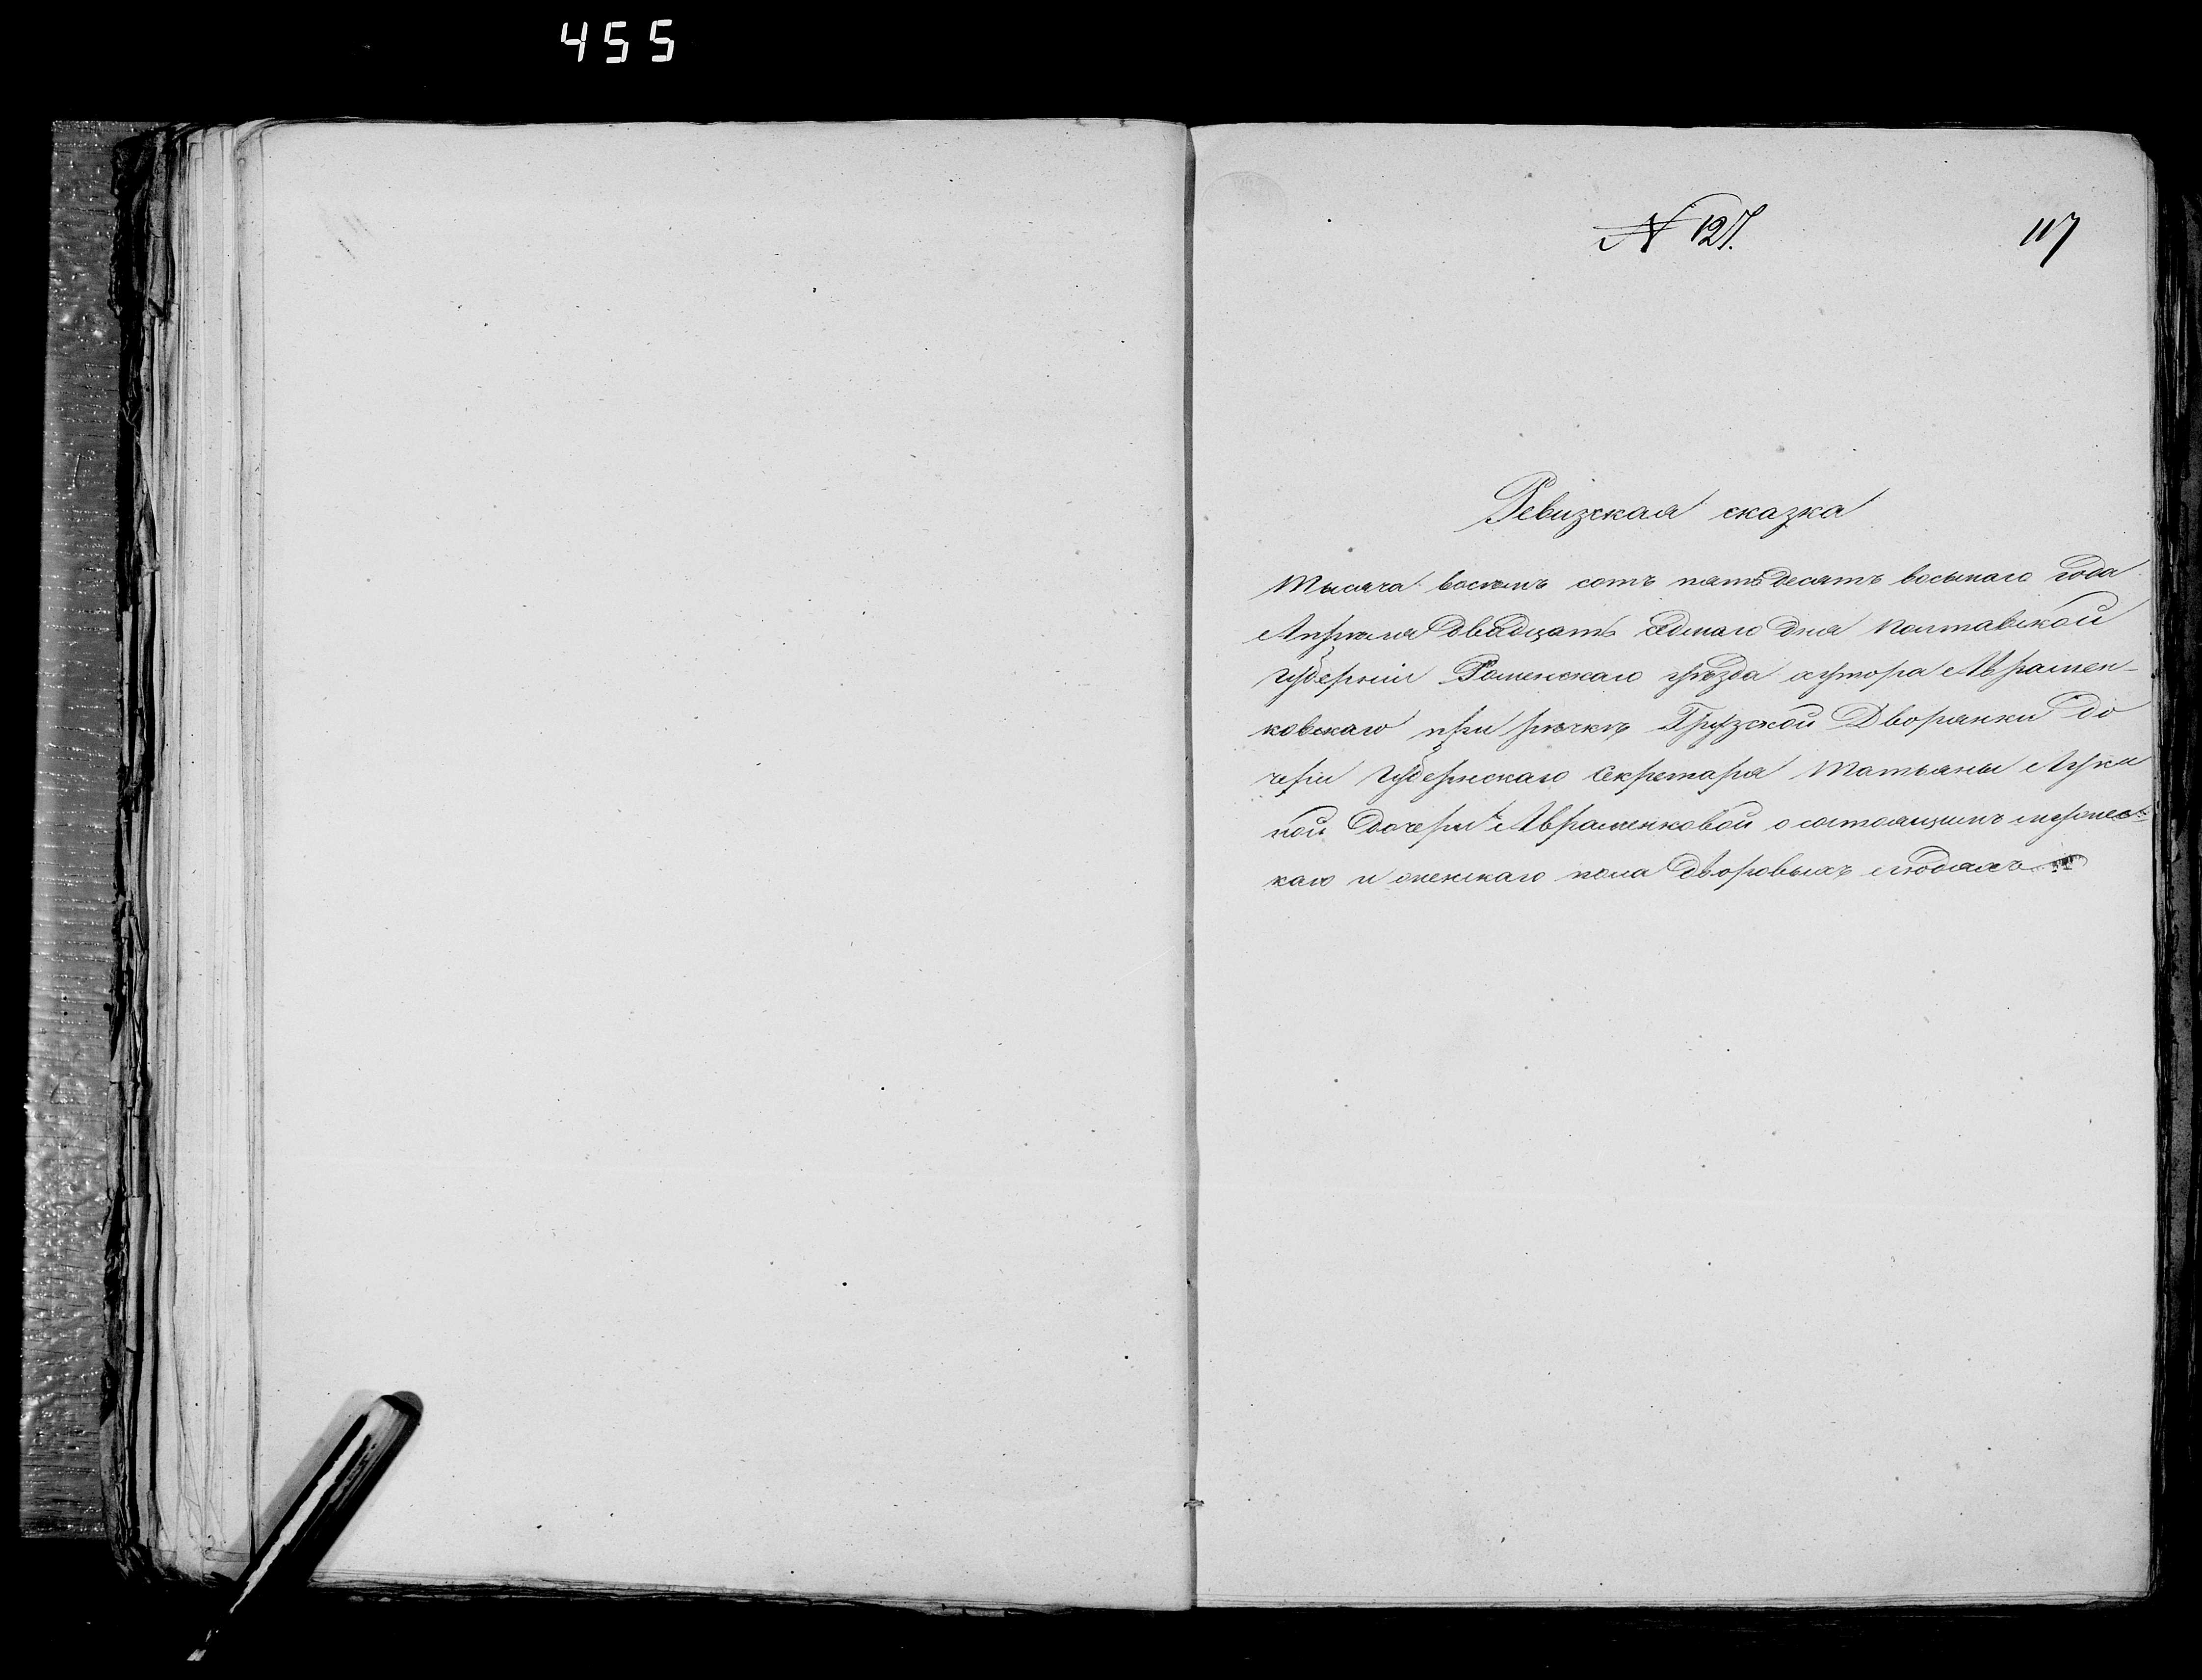 455
№ 127.
117
Ревизская сказка
Тысяча восемь сотъ пятьдесятъ восьмаго года
Апреля двадцать седмаго дня Полтавской
губерніи Роменскаго уѣзда хутора Авраmен-
ковскаго при рѣчкѣ Грузской Дворянки до
чери Губернскаго Секретаря Татьяны Луки
ной дочери Авраменковой о состоящимъ мужес-
каго и женскаго пола дворовыхъ людяхъ